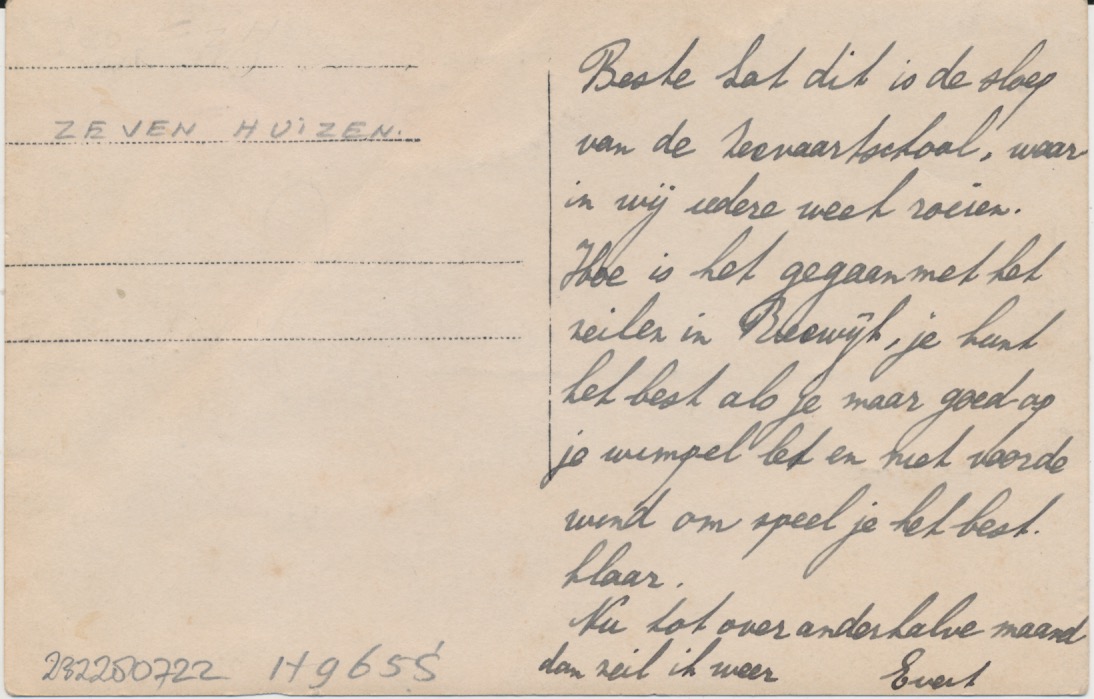 ZEVEN HUIZEN.
Beste Lot dit is de sloep
van de Zeevaartschool, waar
in wij iedere week roeien.
Hoe is het gegaan met het
zeilen in Reewijk, je kunt
het best als je maar goed op
je wimpel let en niet voor de
wind om speel je het best.
klaar.
Nu tot over anderhalve maand
dan zeil ik weer Evert
232250722 H9655